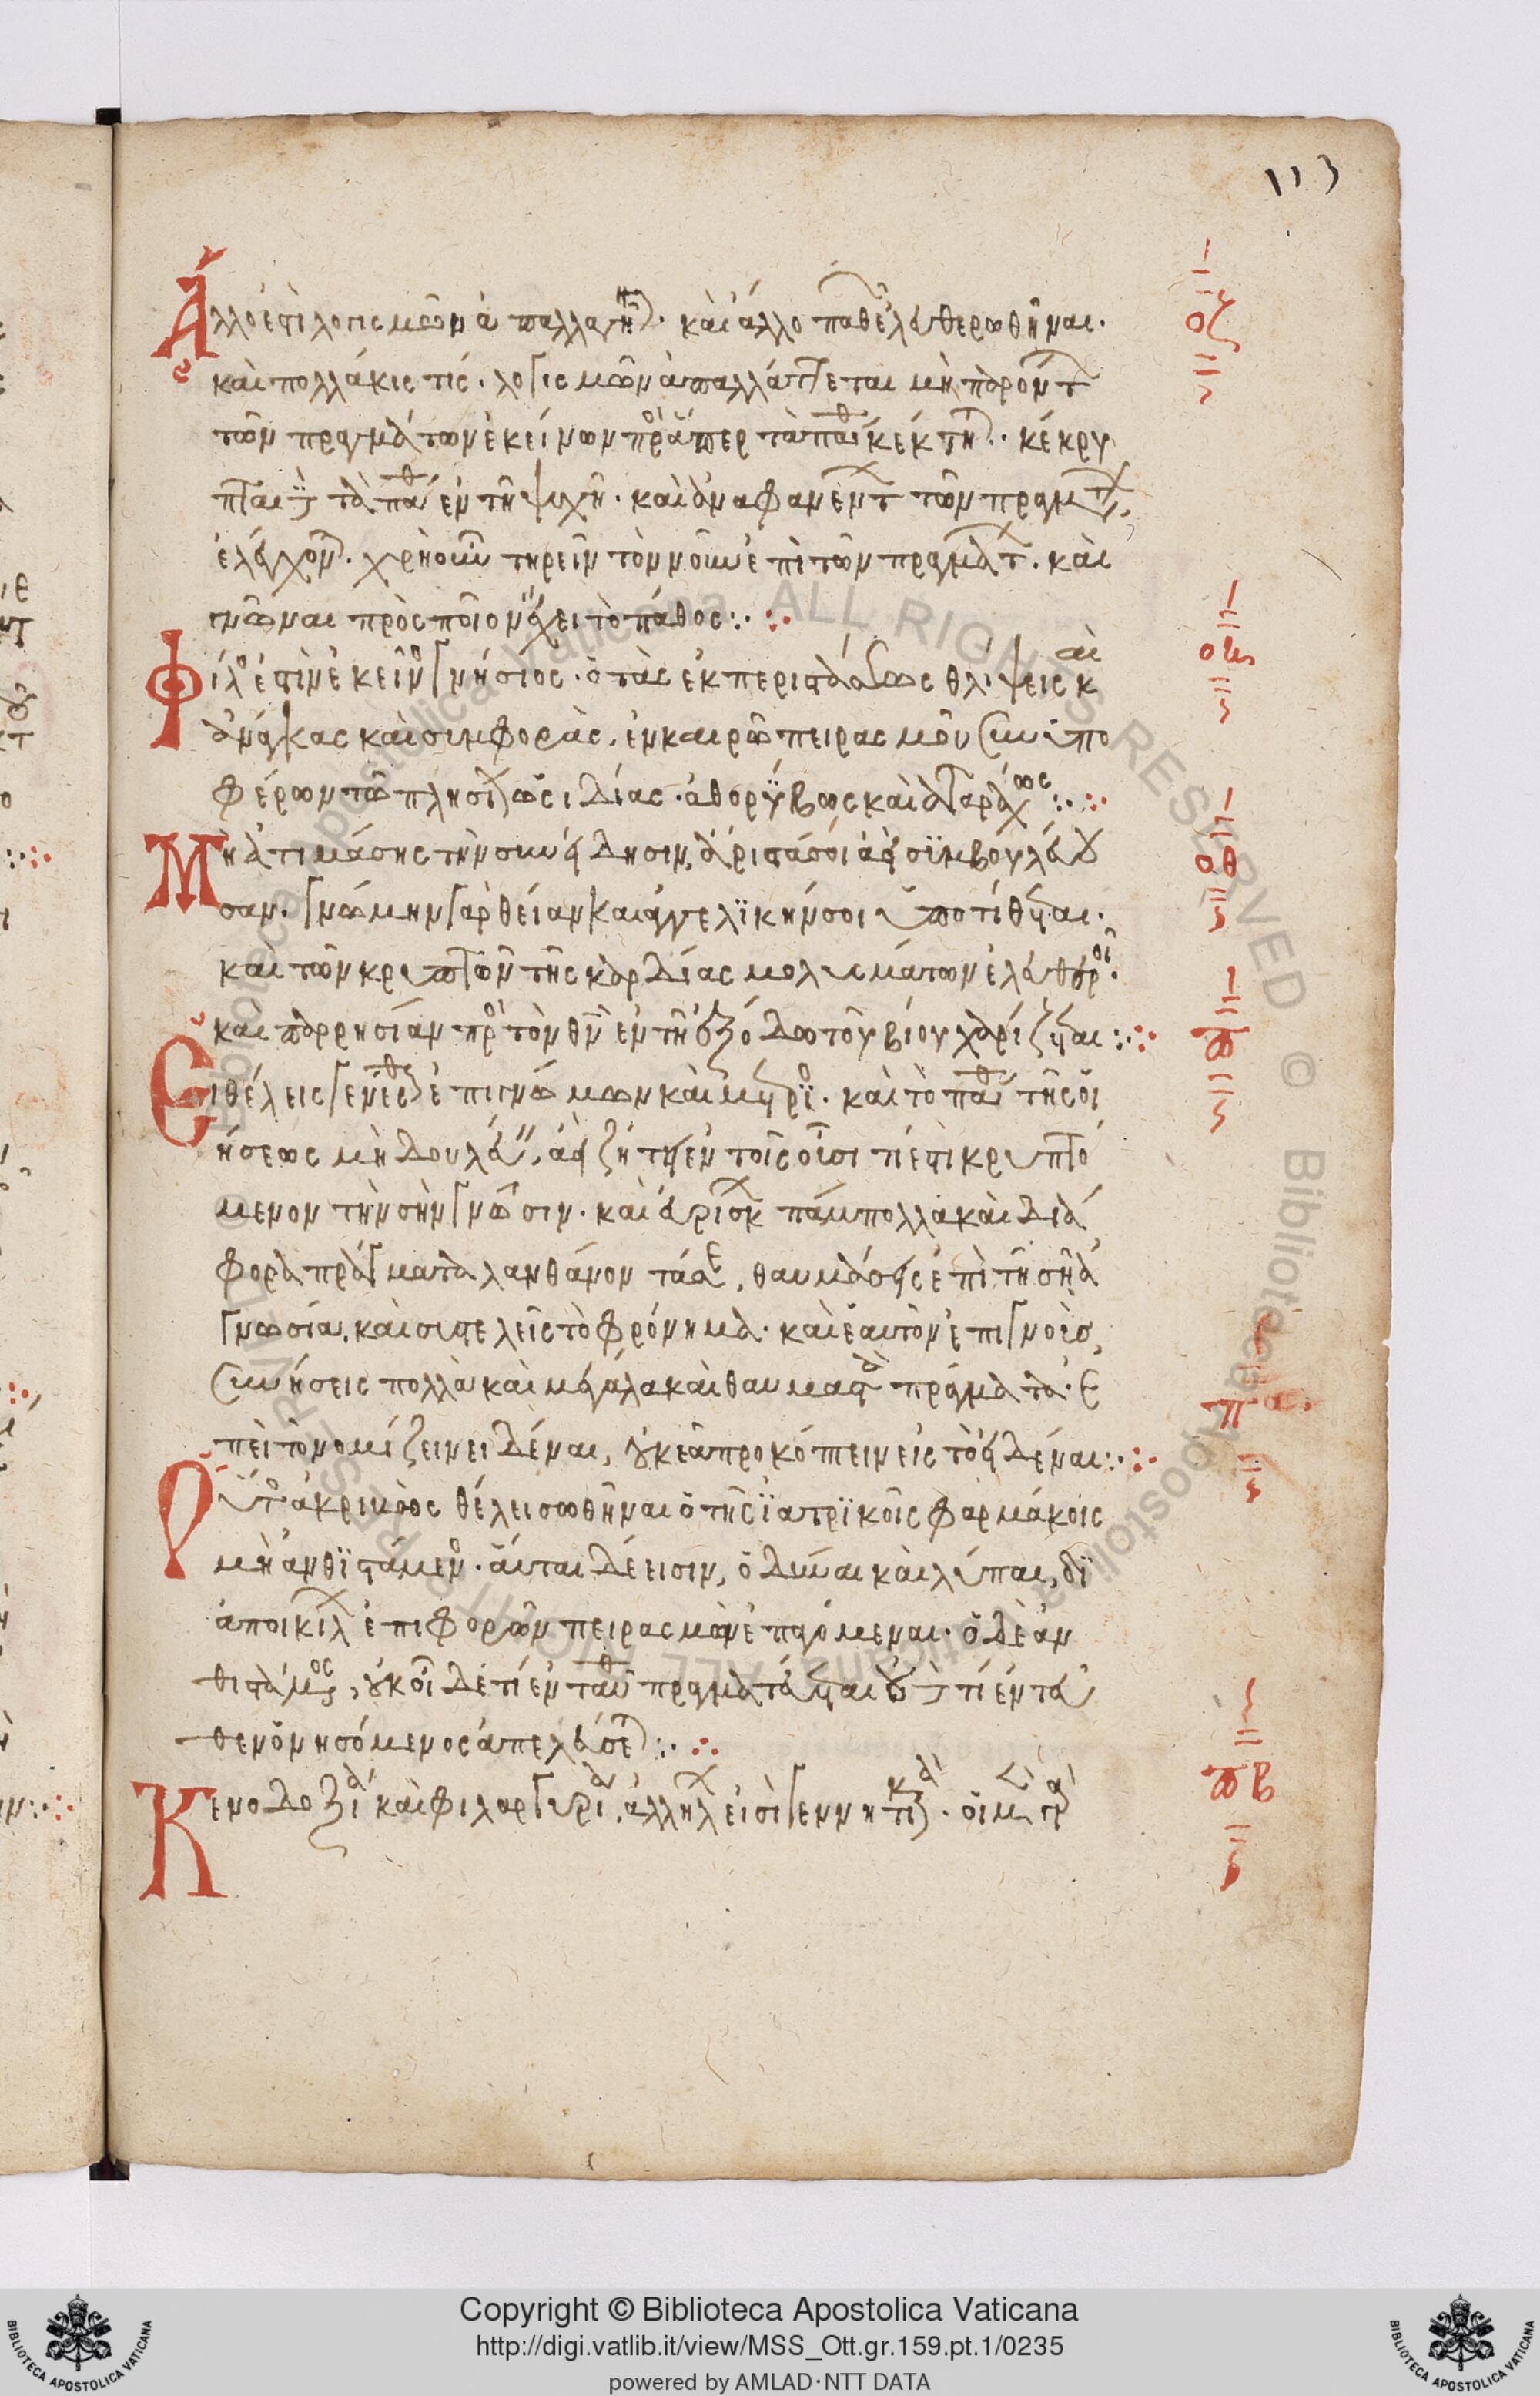 113
Ἄλλο ἐστὶ λογισμῶν ἀπαλλαγῆν· καὶ ἄλλο παθῶν ἐλευθερωθῆναι·
οζ
καὶ πολλάκις τίς· λογισμῶν ἀπαλλάττεται μὴ παρόντων
τῶν πραγμάτων ἐκείνων πρὸς ἅπερ τὰ πάθη κέκτηται· κέκρυ
πται δὲ τὰ πάθη ἐν τῇ ψυχῇ· καὶ ἀναφανέντων τῶν πραγμάτων,
ἐλέγχονται· χρὴ οὖν τηρεῖν τὸν νοῦν ἐπὶ τῶν πραγμάτων· καὶ
γνῶναι πρὸς ποῖον ἔχει τὸ πάθος
Φίλος ἐστὶν ἐκεῖνος γνήσιος· ὁ τὰς ἐκ περιστάσεως θλίψεις καὶ
οη
ἀνάγκας καὶ συμφορὰς, ἐν καιρῷ πειρασμοῦ συνυπο
φέρων τῷ πλησίον ὡς ἰδίας· ἀθορύβως καὶ ἀταράχως
Μὴ ἀτιμάσῃς τὴν συνείδησιν, ἄριστά σοι ἀεὶ συμβουλεύου
οθ
σαν· γνώμην γὰρ θείαν καὶ ἀγγελικήν σοι ὑποτίθεται·
καὶ τῶν κρυπτῶν τῆς καρδίας μολυσμάτων ἐλευθεροῖ·
καὶ παρρησίαν πρὸς τὸν θν ἐν τῇ ἐξόδω τοῦ βίου χαρίζεται
π
Εἰ θέλεις γενέσθαι ἐπιγνώμων καὶ μέτριος· καὶ τὸ πάθει τῆς οἰ
ήσεως μὴ δουλεύειν, ἀεὶ ζήτει ἐν τοῖς οὖσι τί ἐστι κρυπτό
μενον τὴν σὴν γνῶσιν· καὶ εὑρίσκων πάμπολλα καὶ διά
φορα πράγματα λανθάνοντά σε, θαυμάσεις ἐπὶ τῇ σῇ ἀ
γνωσίᾳ, καὶ συστελεῖς τὸ φρόνημα· καὶ ἑαυτὸν ἐπιγνοὺς,
συνήσεις πολλὰ καὶ μεγάλα καὶ θαυμαστὰ πράγματα· ἐ
πα
πεὶ τὸ νομίζειν εἰδέναι, οὐκ ἐᾷ προκόπτειν εἰς τὸ εἰδέναι
Οὗτος ἀκριβῶς θέλει σωθῆναι ὁ τῆς ἰατρικοῖς φαρμάκοις
μὴ ἀνθιστάμενος· αὗται δέ εἰσιν, ὀδύναι καὶ λύπαι, δι
ὰ ποικίλων ἐπιφορῶν πειρασμῶν ἐπαγόμεναι· ὁ δὲ ἀν
θιστάμενος, οὐκ οἶδε τί ἐνταῦθα πραγματεύεται οὔτε τί ἐντεῦ
θεν ὀνησόμενος ἀπελεύσεται
Κενοδοξία καὶ φιλαργυρία, ἀλλήλων εἰσὶ γεννητικά· οἱ μὲν γὰρ
πβ
Copyright © Biblioteca Apostolica Vaticana
http://digi.vatlib.it/view/MSS_Ott.gr.159.pt.1/0235
powered by AMLAD·NTT DATA